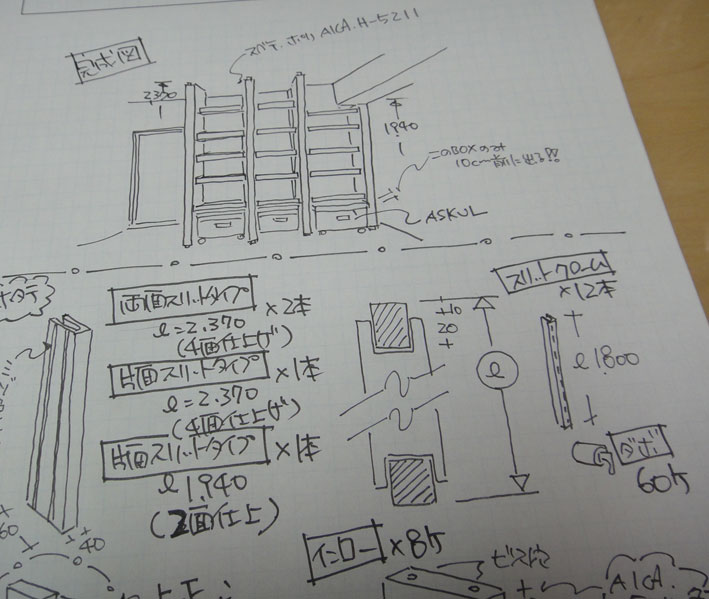 完成図
スベテ、ポリ AICA. H-5211
2350
1940
このBOXのみ
10cm前に出る!!
ASKUL
両面スリットタイプ ×2本
ℓ=2.370
(4面仕上げ)
片面スリットタイプ ×1本
ℓ=2.370
(4面仕上げ)
片面スリットタイプ ×1本
ℓ 1,940
(2面仕上)
60
40
10
20
ℓ
スリットクローム
×12本
ℓ 1,800
ダボ
60ケ
イモロー ×8ケ
ビス穴
AICA.